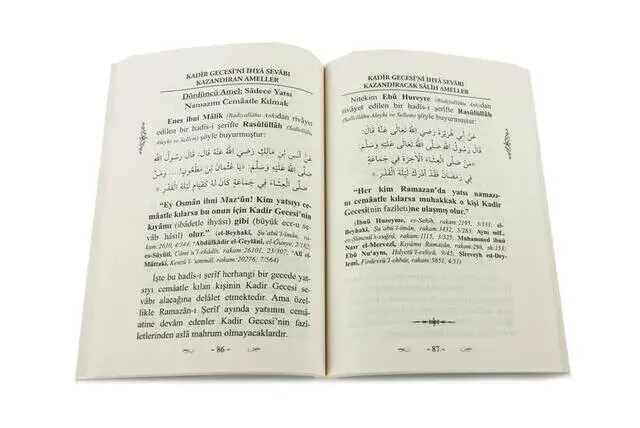 KADİR GECESİ'Nİ İHYÂ SEVÂBI
KAZANDIRAN AMELLER
Dördüncü Amel: Sâdece Yatsı
Namazını Cemâatle Kılmak
Enes ibni Mâlik (Radıyallâhu Anh)dan rivâyet
edilen bir hadîs-i şerîfte Rasûlüllâh (Sallellâhu
Aleyhi ve Sellem) şöyle buyurmuştur:
عَنْ أَنَسِ بْنِ مَالِكٍ رَضِيَ اللّٰهُ عَنْهُ قَالَ: قَالَ رَسُولُ اللّٰهِ
صَلَّى اللّٰهُ عَلَيْهِ وَسَلَّمَ: «يَا عُثْمَانُ بْنَ مَظْعُونٍ! ... وَمَنْ
صَلَّى الْعِشَاءَ فِي جَمَاعَةٍ كَانَ لَهُ كَقِيَامِ لَيْلَةِ الْقَدْرِ.»
"Ey Osmân ibni Maz'ûn! Kim yatsıyı ce-
mâatle kılarsa bu onun için Kadir Gecesi'nin
kıyamı (ibâdetle ihyâsı) gibi (büyük ecr-u se-
vâb hâsıl) olur." (el-Beyhakî, Şu'abü'l-îmân, ra-
kam:2610, 4/344; 'Abdülkâdir el-Geylânî, el-Ğunye, 2/182;
es-Süyûtî, Câmi'u'l-ehâdîs, rakam:26101, 23/307; 'Alî el-
Müttakî, Kenzü'l-'ummâl, rakam:20276, 7/564)
İşte bu hadîs-i şerîf herhangi bir gecede yat-
sıyı cemâatle kılan kişinin Kadir Gecesi
sevâbı alacağına delâlet etmektedir. Ama özel-
likle Ramazân-ı Şerîf ayında yatsının cemâ-
atine devam edenler Kadir Gecesi'nin fazî-
letlerinden aslâ mahrum olmayacaklardır.
- 86 -
KADİR GECESİ'Nİ İHYÂ SEVÂBI
KAZANDIRACAK SÂLİH AMELLER
Nitekim Ebû Hureyre (Radıyallâhu Anh)dan
rivâyet edilen bir hadîs-i şerîfte Rasûlüllâh
(Sallellâhu Aleyhi ve Sellem) şöyle buyurmuştur:
عَنْ أَبِي هُرَيْرَةَ رَضِيَ اللّٰهُ عَنْهُ قَالَ: قَالَ رَسُولُ اللّٰهِ
صَلَّى اللّٰهُ عَلَيْهِ وَسَلَّمَ: «مَنْ صَلَّى الْعِشَاءَ الْآخِرَةَ فِي جَمَاعَةٍ
فِي رَمَضَانَ فَقَدْ أَدْرَكَ لَيْلَةَ الْقَدْرِ.»
"Her kim Ramazan'da yatsı namazı-
nı cemâatle kılarsa muhakkak o kişi Kadir
Gecesi(nin fazîleti)ne ulaşmış olur."
(İbnü Huzeyme, es-Sahîh, rakam:2195, 3/333; el-
Beyhakî, Şu'abü'l-îmân, rakam:3432, 5/283; Aynı mlf.,
es-Sünenü's-suğrâ, rakam:1115, 3/323; Muhammed ibnü
Nasr el-Mervezî, Kıyâmu Ramazân, rakam:298, sh:153;
Ebû Nu'aym, Hılyetü'l-evliyâ, 9/45; Şîreveyh ed-Dey-
lemî, Firdevsü'l-ehbâr, rakam:5651, 4/51)
- 87 -